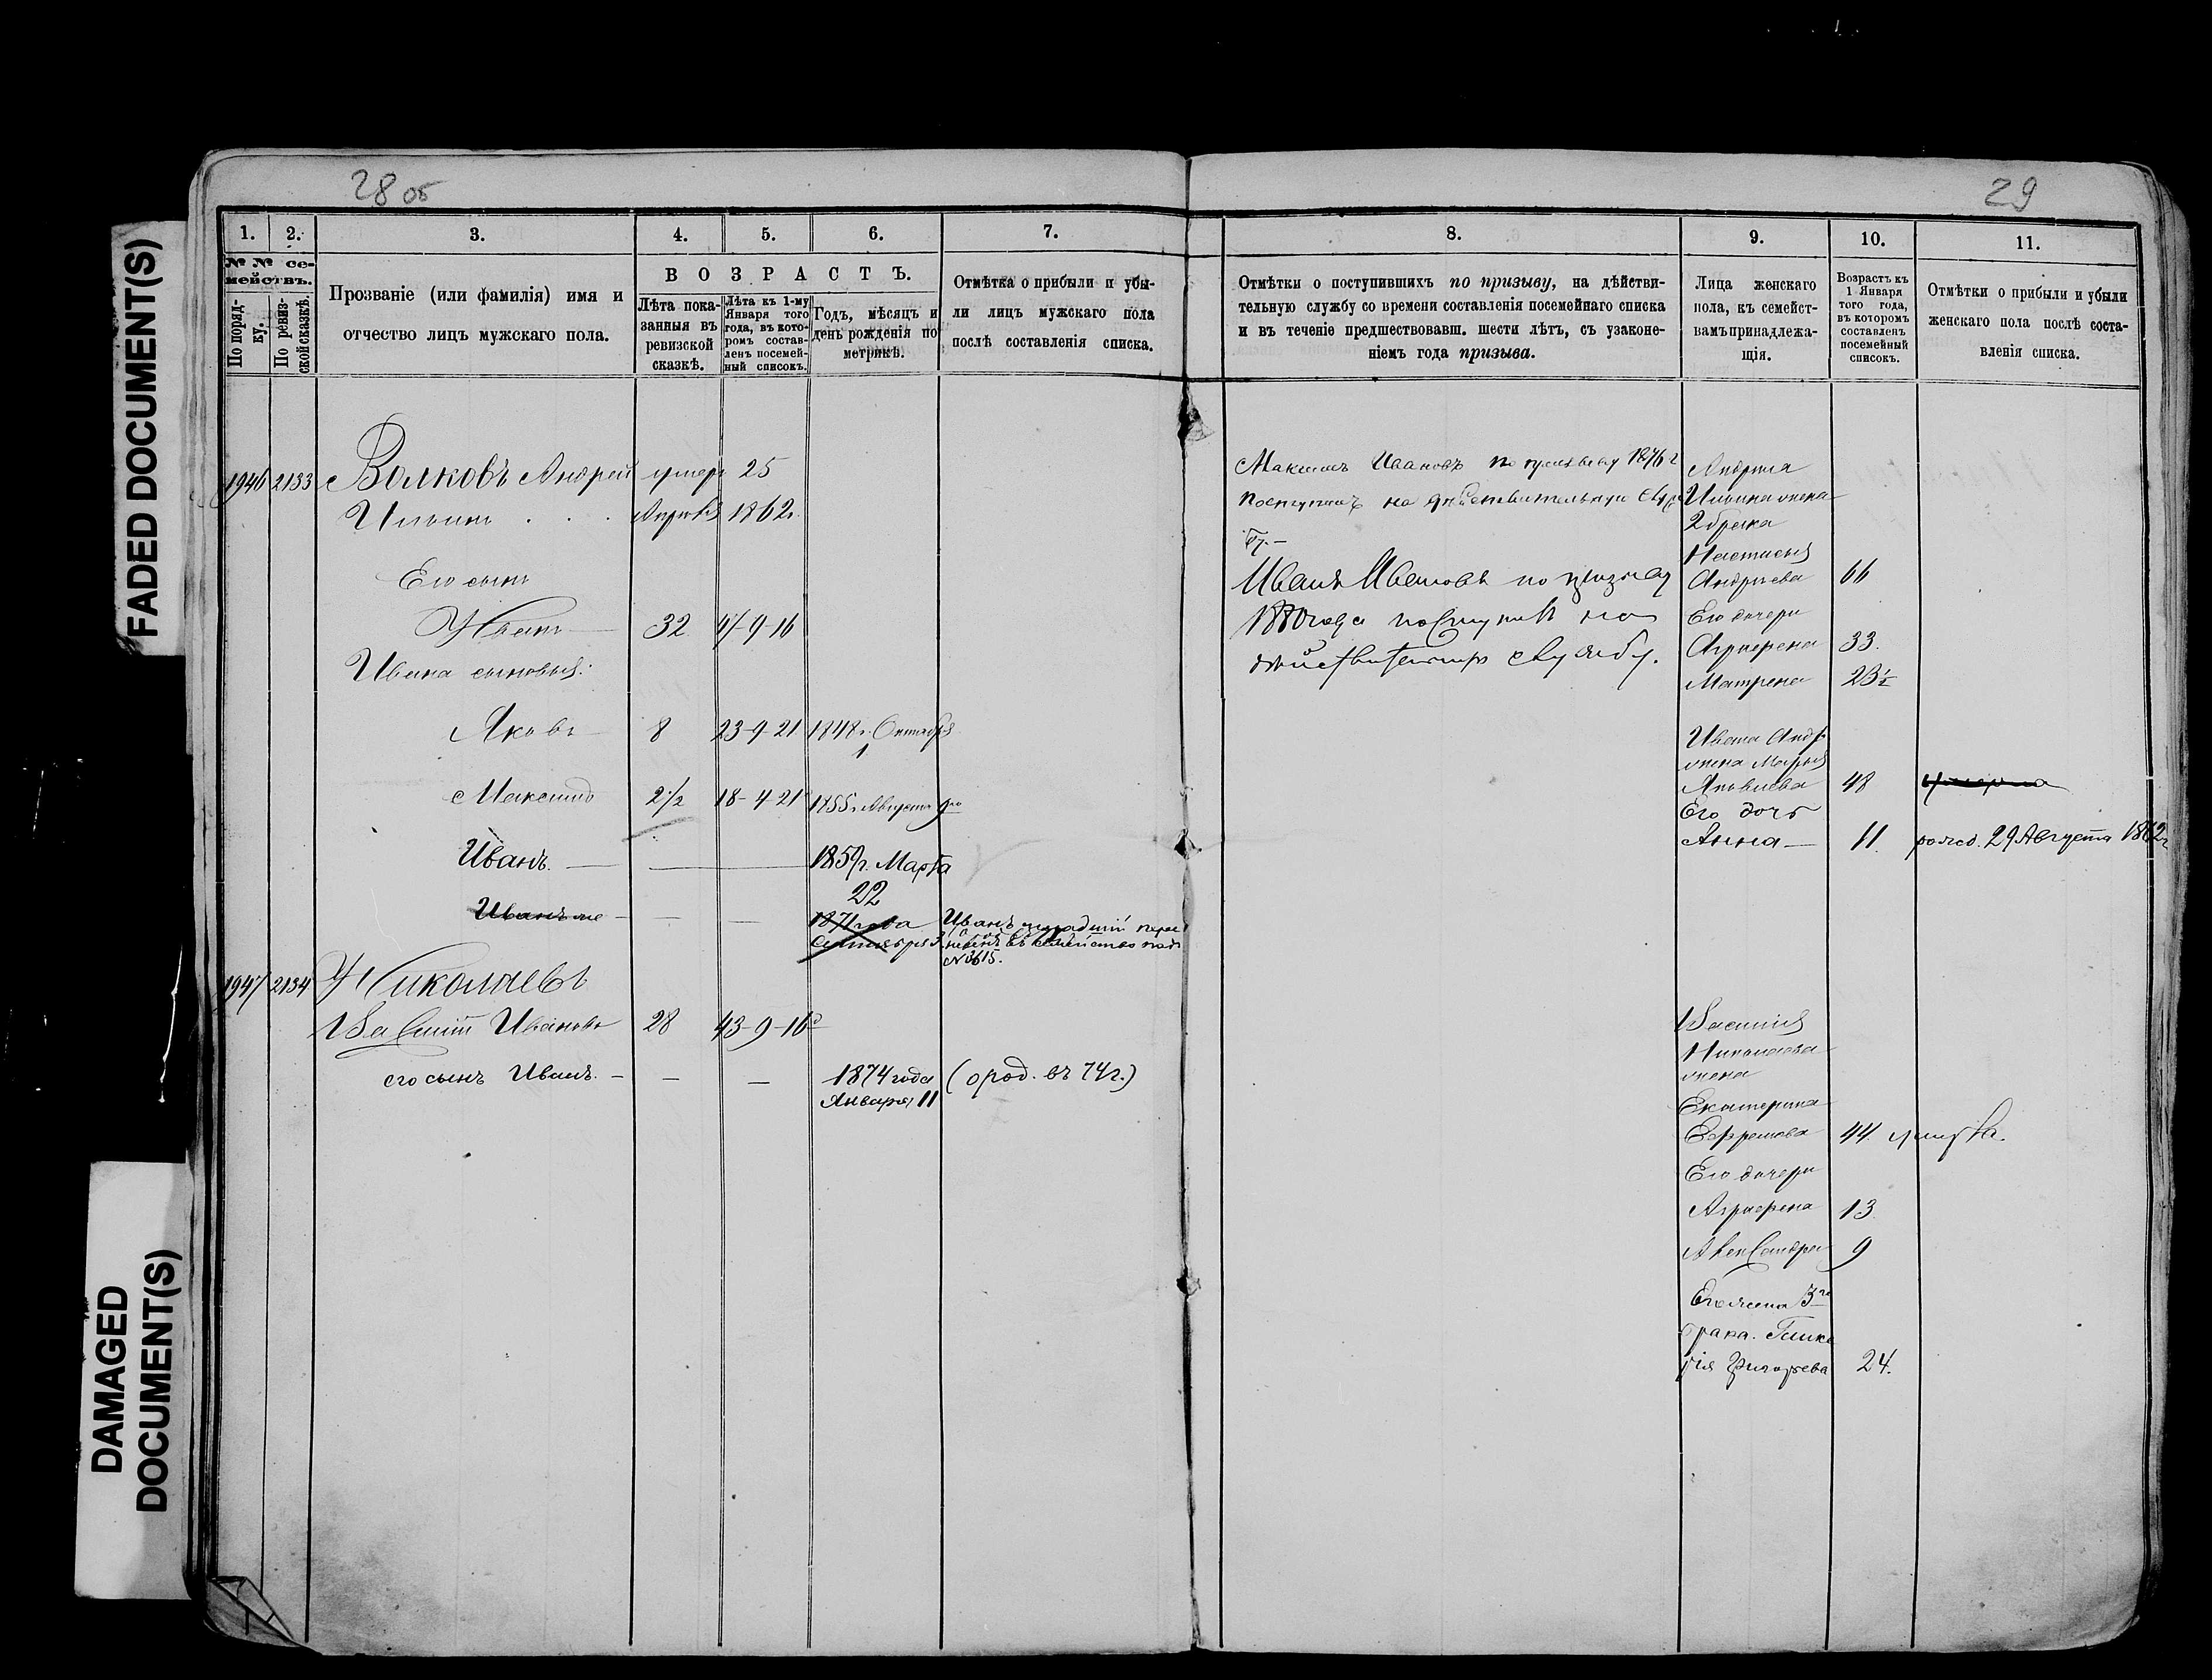 FADED DOCUMENT(S)
DAMAGED
DOCUMENT(S)
28 об
1. 2. 3. 4. 5. 6. 7.
№ № се-
мействъ.
По поряд-
ку.
По ревиз-
ской сказкѣ.
Прозваніе (или фамилія) имя и
отчество лицъ мужскаго пола.
ВОЗРАСТЪ.
Лѣта пока-
занныя въ
ревизской
сказкѣ.
Лѣта къ 1-му
Января того
года, въ кото-
ромъ состав-
ленъ посемей-
ный списокъ.
Годъ, мѣсяцъ и
день рожденія по
метрикѣ.
Отмѣтка о прибыли и убы-
ли лицъ мужскаго пола
послѣ составленія списка.
1946 2133 Волковъ Андрей умеръ 25
Ильинъ . . . Апрѣля 1862г.
Его сынъ
Иванъ 32 47-9-16
Ивана сыновья:
Яковъ 8 23-9-21 1848 г. Октября
1
Максимъ 2 1/2 18-4-21 1855 г. Августа 9го
Иванъ. — 1859г. Марта
22
Иванъ же — — — 1871 года Иванъ младшій пере
Сентября
№ 3615.
1947 2134 Николаевъ
Василій Ивановъ 28 43-9-16
его сынъ Иванъ. — — — 1874 года (о род. въ 74г.)
Января 11
29
8. 9. 10. 11.
Отмѣтки о поступившихъ по призыву, на дѣйстви-
тельную службу со времени составленія посемейнаго списка
и въ теченіе предшествовавш. шести лѣтъ, съ узаконе-
ніемъ года призыва.
Лица женскаго
пола, къ семейст-
вамъ принадлежа-
щія.
Возрастъ къ
1 Января
того года,
въ которомъ
составленъ
посемейный
списокъ.
Отмѣтки о прибыли и убыли
женскаго пола послѣ соста-
вленія списка.
Максимъ Ивановъ по призыву 1876 г
поступилъ на дѣйствительную служ
бу.—
Иванъ Ивановъ по призыву
1880 года поступилъ на
дѣйствительную службу.
Андрея
Ильина жена
2 брака
Настасья
Андреева 66
Его дочери
Агрпфена 33.
Матрена 23 1/2
Ивана Андр.
жена Марья
Яковлева 48 умерла
Его дочь
Анна — 11. рожд. 29 Августа 1862г
Василия
Николаева
жена
Екатерина
Ефремова 44 умерла.
Его дочери
Агрпфена 13
Александра 9
Его жена 3го
брака. Глике
рія Григорьева 24.